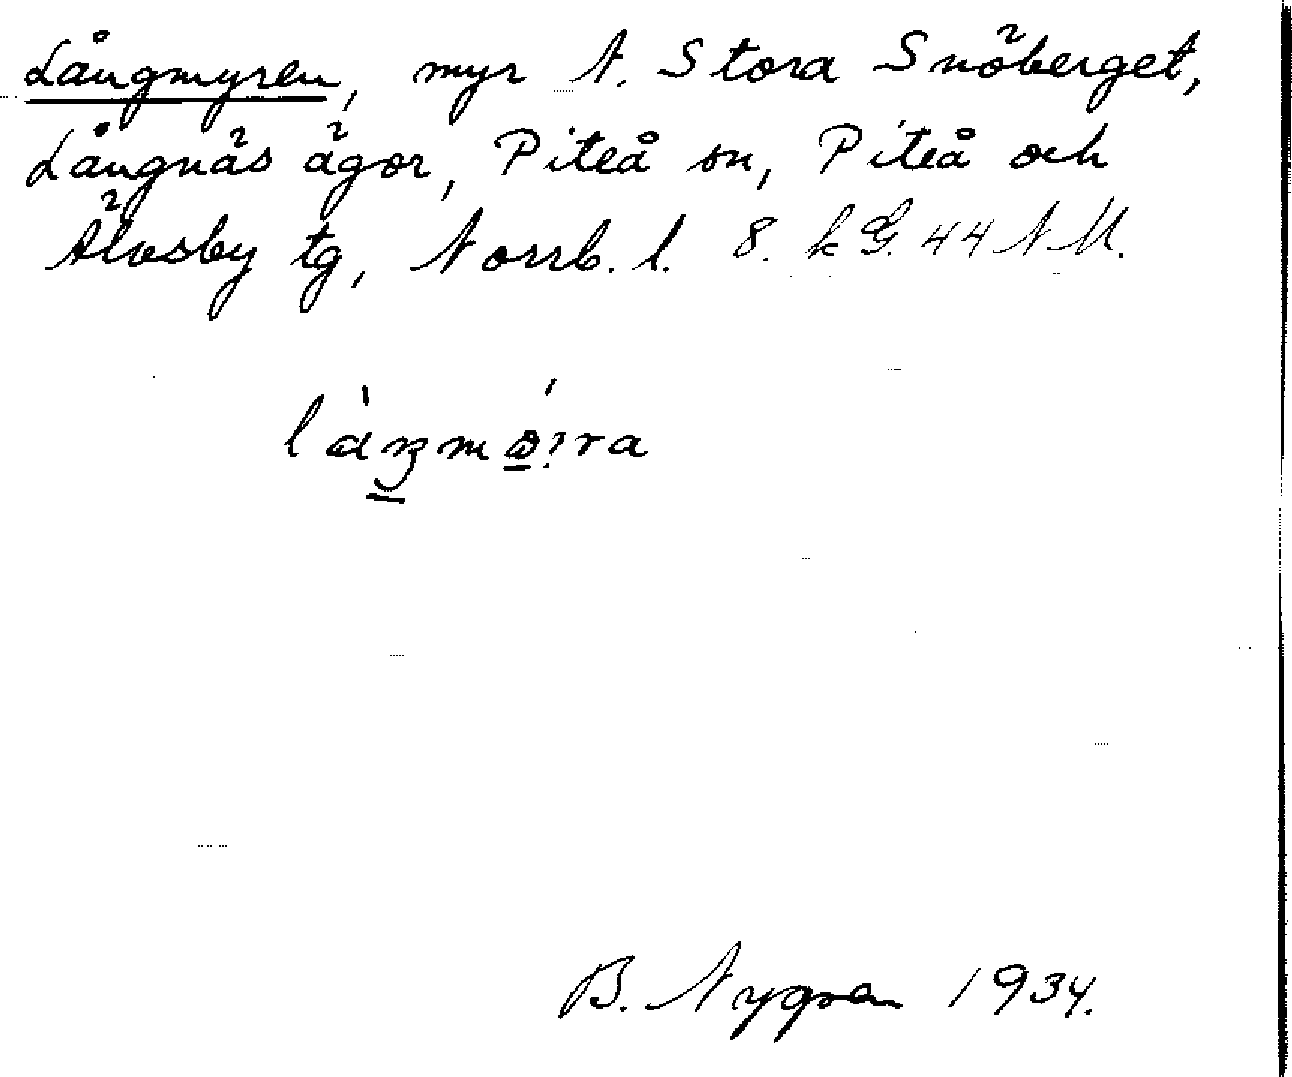 Långmyren, myr N. Stora Snöberget,
Långnäs ägor, Piteå sn, Piteå och
Älvsby tg, Norrb. l. 8. k G. 44 N M.
B. Nygren 1934.